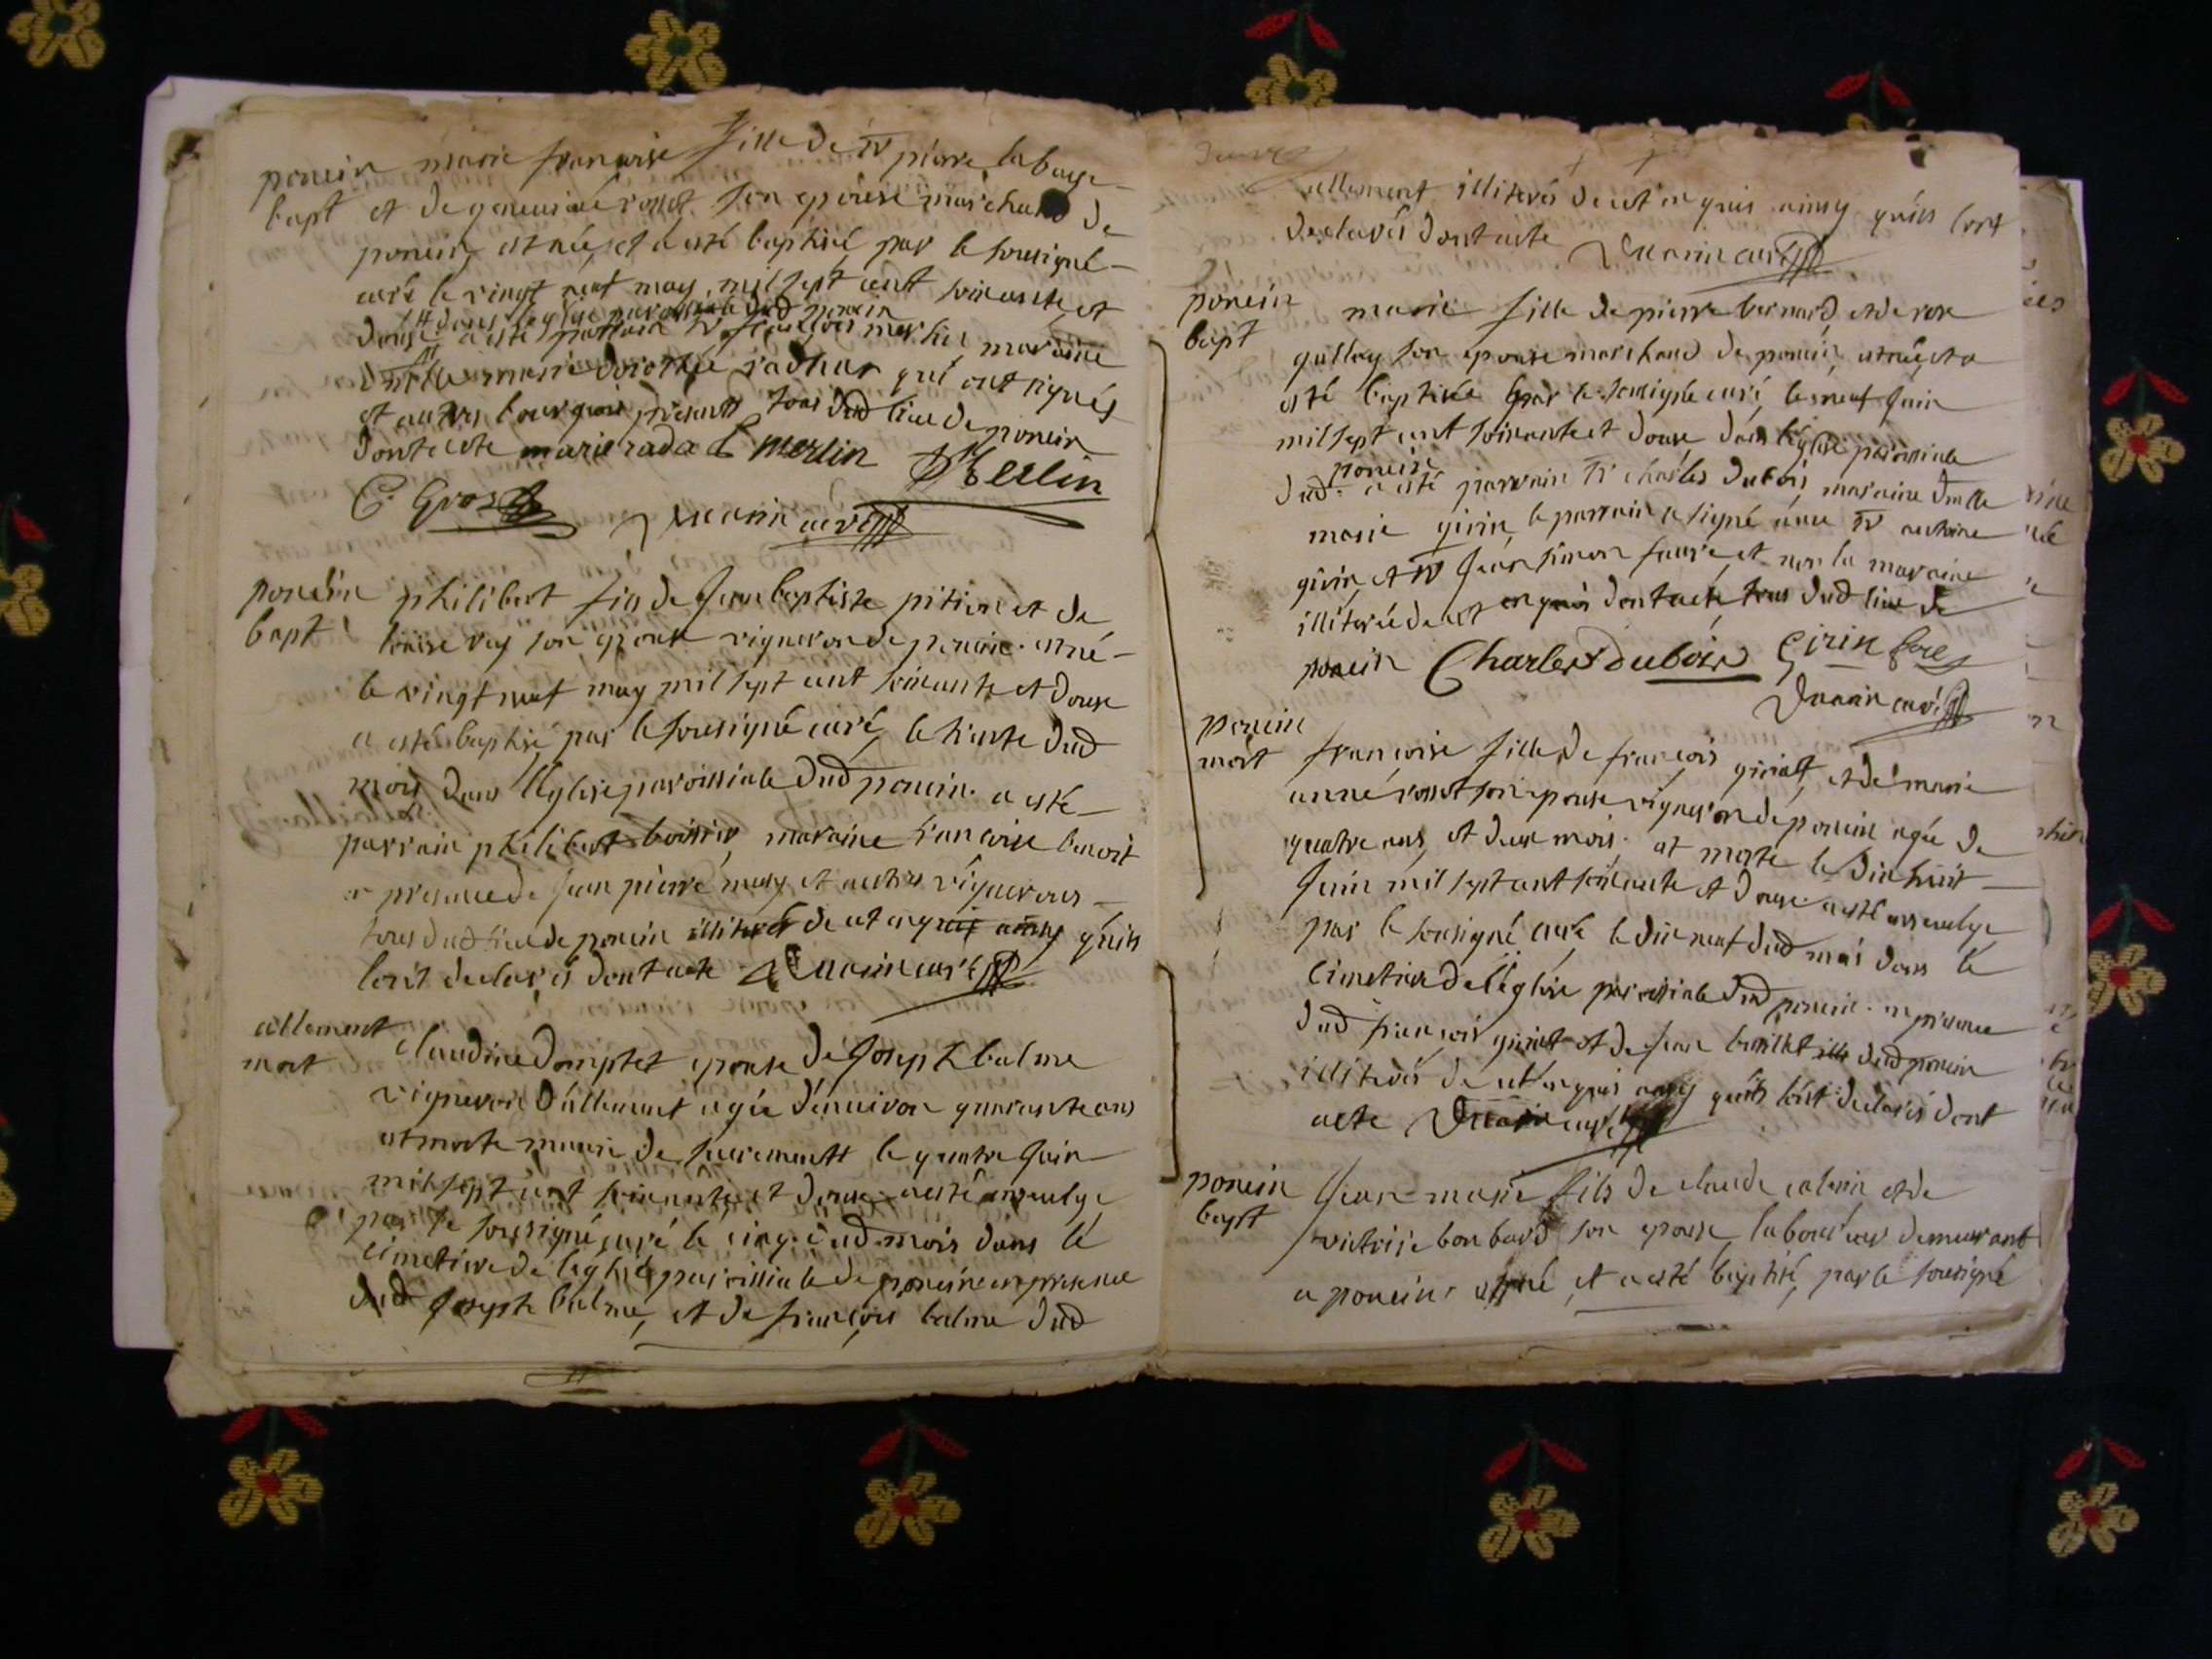 poncin marie françoise fille de sr pierre labarge
bapt et de genevieve rosset son epouse marchand de
poncin, est née, et a esté baptisé par le sousigné
curé le vingt neuf may, mil sept cent soixante et
dans l'eglise parroissiale dud poncin
douse a esté parrain sr françois merlin maraine
dlle marie dorothée radd qui ont signés
et autres bourgeois présents tous dud lieu de poncin
dont acte marie rada merlin Merlin
C. Gros curé
poncin philibert fils de jean baptiste pition et de
bapt loüise rey son epouse vigneron de poncin est né
le vingt neuf may mil sept cent soixante et douse
a esté baptisé par le sousigné curé le trente dud
mois dans l'église paroissiale dud poncin a esté
parrain philibert boissier, maraine françoise benoit
en presence de jean pierre et autres vignerons
tous dud lieu de poncin illiterés de ce enquis ainsy quils
lont declarés dont acte curé
allement claudine domptet epouse de joseph balme
mort vigneron d'allement agée d'environ quarante ans
est morte munie de sacrements le quatre juin
mil sept cent soixante et douse a esté ensevelye
par le soussigné curé le cinq dud mois dans le
cimetiere de leglise paroissiale de poncin en presence
dud joseph balme, et de françois balme dud
allement illiterés de cet enquis ainsy quils lont
declarés dont acte curé
poncin marie fille de pierre bernard et de rose
bapt gallay son epouse marchand de poncin, est née, et a
esté baptisée par le sousigné curé, le neuf juin
mil sept cent soixante et douse dans léglise paroissiale
poncin
dud a esté parrain sr charles dubois, maraine dlle
marie girin, le parrain a signé avec sr anthoine
girin, et sr jean simon faure, et non la maraine
illiterée de cet enquis dont acte, tous dud lieu de
poncin Charles dubois Girin fore
curé
poncin
mort françoise fille de françois giriat, et de marie
anne rosset son epouse vigneron de poncin agée de
quatre ans, et deux mois, est morte le dix huit
juin mil sept cent soixante et douse a esté ensevelye
par le sousigné curé le dix neuf dud mois dans le
cimetiere de l'église paroissiale dud poncin en presence
dud françois giriat et de jean dud poncin
illiterés de cet enquis ainsy quils lont declarés dont
acte curé
poncin jean-marie fils de claude calerin et de
bapt victoire bonbard son epouse, laboureur demeurant
a poncin, est né, et a esté baptisé, par le sousigné